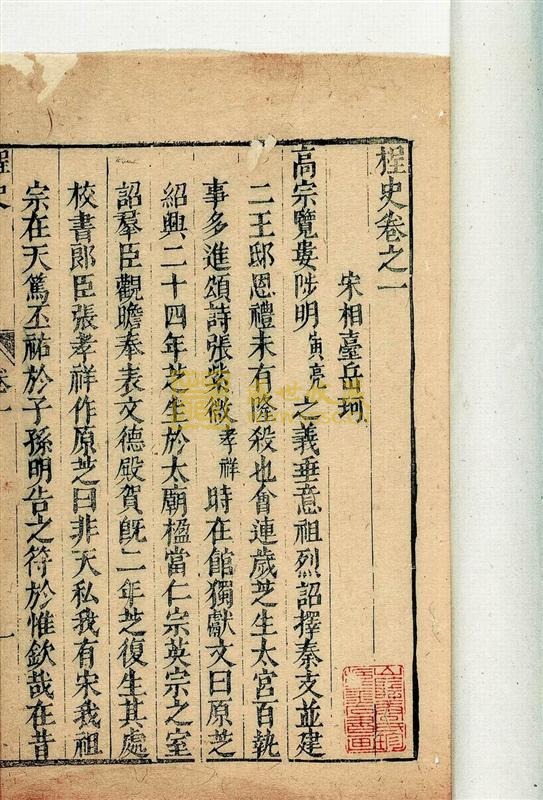 桯史卷之一
宋相臺岳珂
高宗覽婁陟明寅亮之義垂意祖烈詔擇秦支並建
二王邸恩禮未有隆殺也會連歲芝生太宮百執
事多進頌詩張紫微孝祥時在館獨獻文曰原芝
紹興二十四年芝生於太廟楹當仁宗英宗之室
詔羣臣觀瞻奉表文德殿賀旣二年芝復生其處
校書郎臣張孝祥作原芝曰非天私我有宋我祖
宗在天篤丕祐於子孫明告之符於惟欽哉在昔
桯史
卷一
一